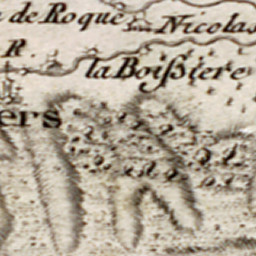 de Roque
Nicolas
R.
la Boißiere
ers